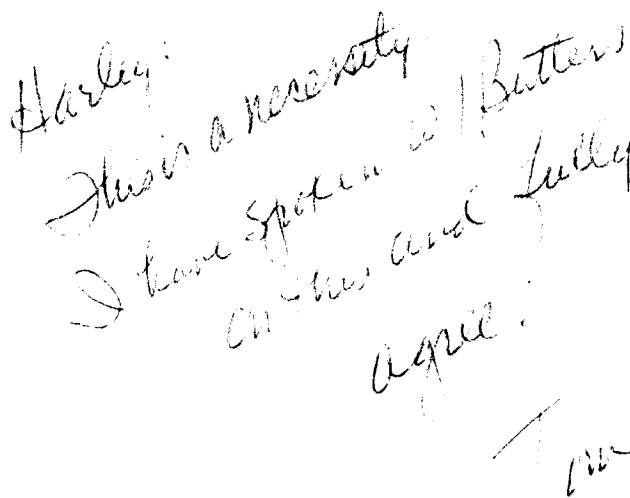 Harley:
This is a necessity
I have spoken w/ Butters
on this and fully
agree.
Tom